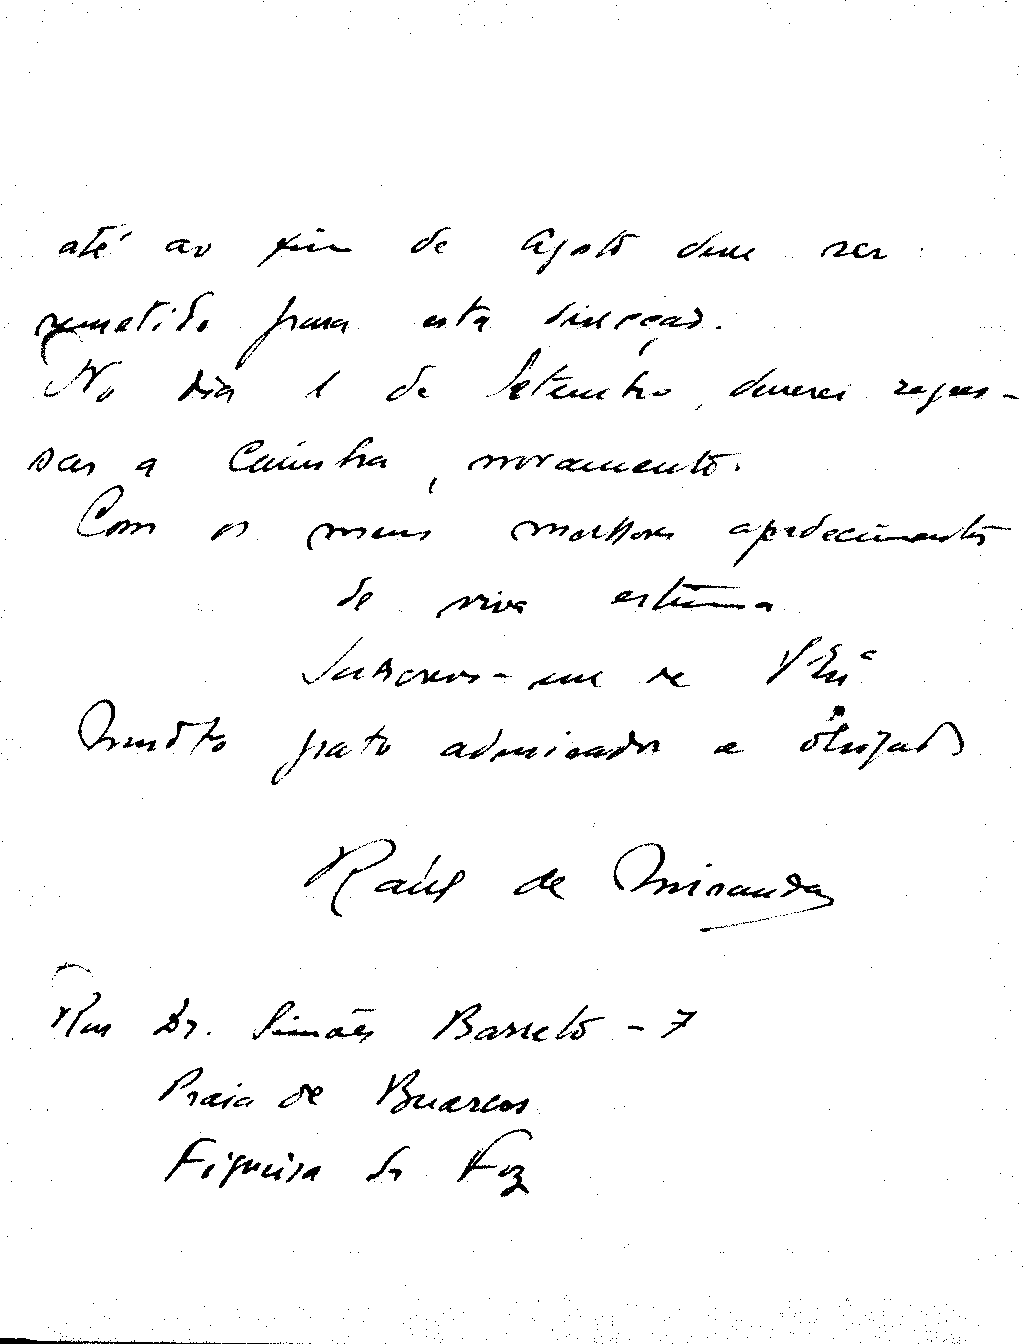 até ao fim de Agosto deve ser
remetido para esta direcção.
No dia 1 de Setembro, deverei regres-
sar a Coimbra, novamente.
Com os meus melhores agradecimentos
de viva estima
subscrevo-me de V. Exª
Muito grato admirador e obrigado
Raúl de Miranda
Rua Dr. Simões Barreto - 7
Praia de Buarcos
Figueira da Foz